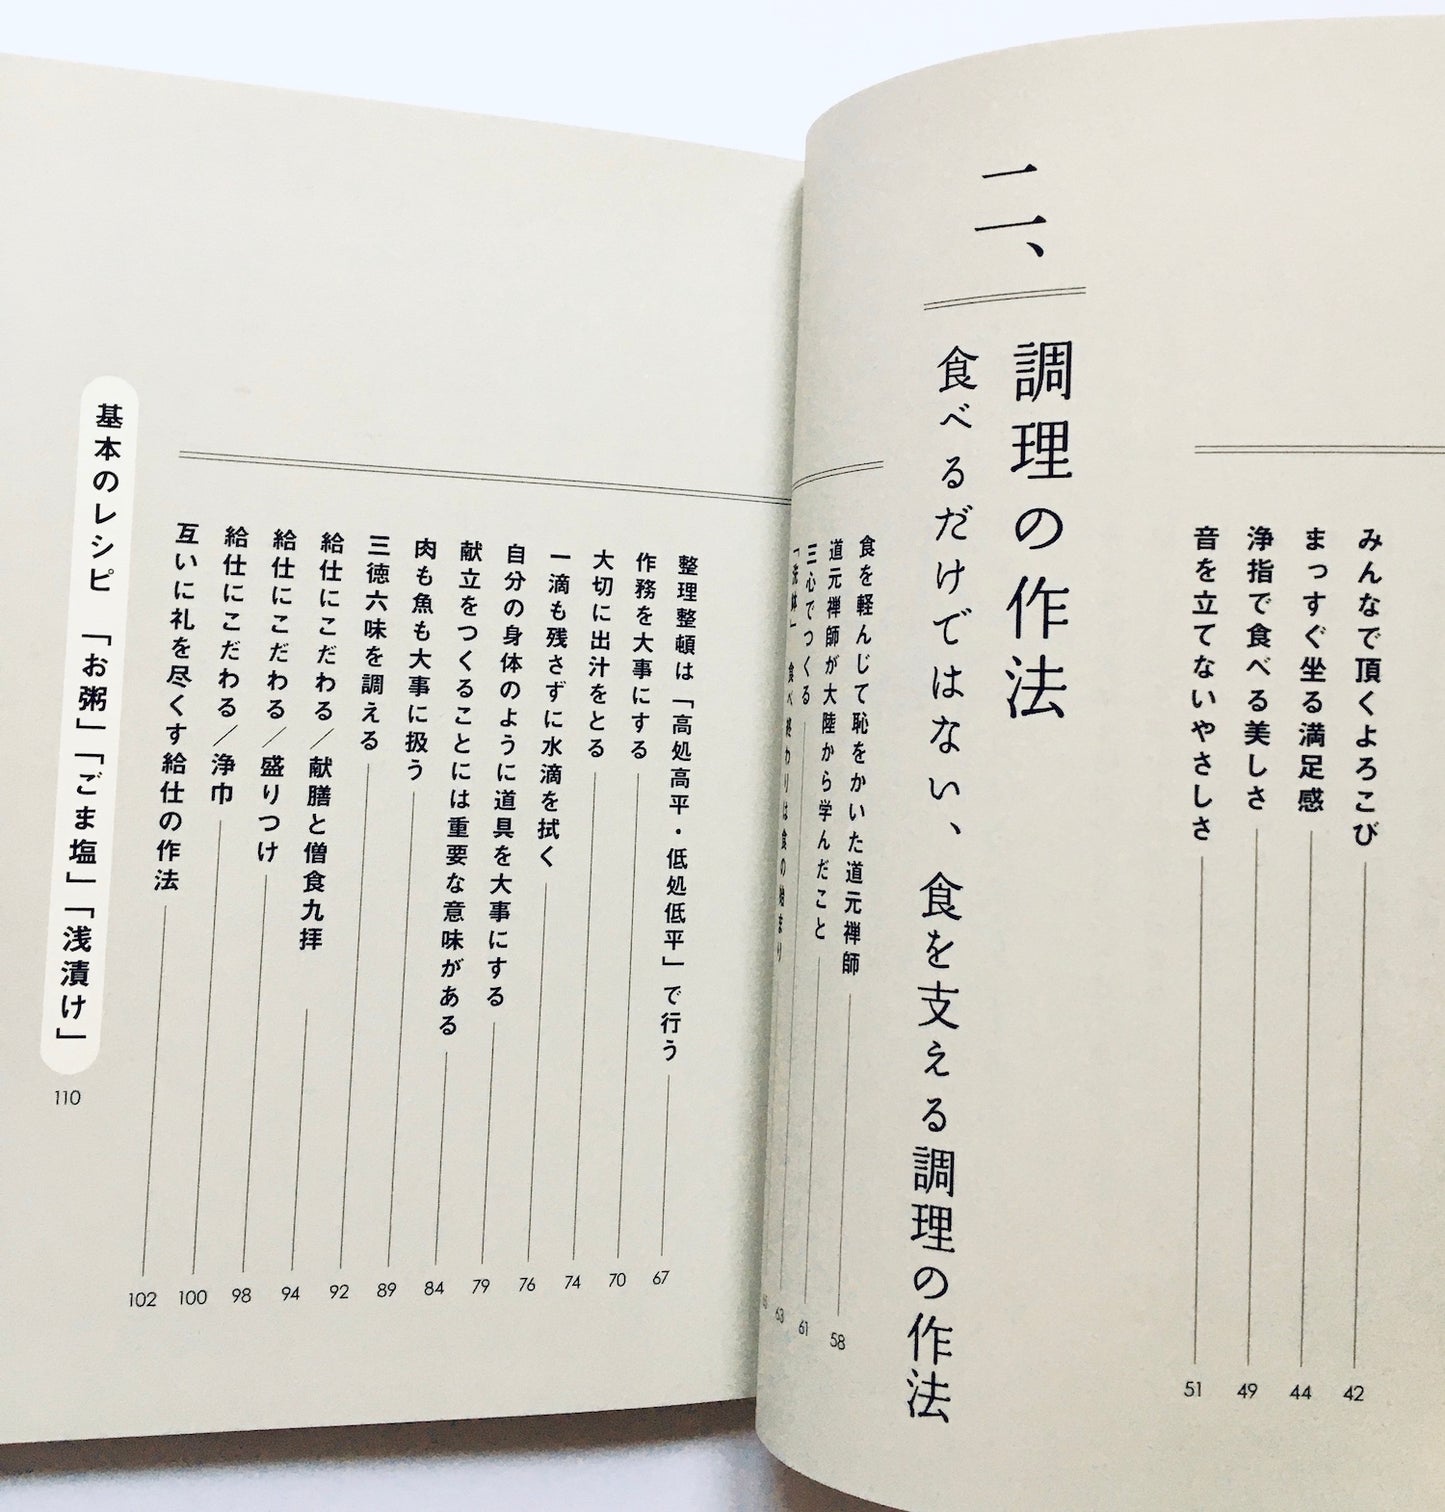 みんなで頂くよろこび 42
まっすぐ坐る満足感 44
浄指で食べる美しさ 49
音を立てないやさしさ 51
二、
調理の作法
食べるだけではない、食を支える調理の作法
食を軽んじて恥をかいた道元禅師 58
道元禅師が大陸から学んだこと 61
三心でつくる 63
「洗鉢」 食べ終わりは食の始まり
整理整頓は「高処高平・低処低平」で行う 67
作務を大事にする 70
大切に出汁をとる 74
一滴も残さずに水滴を拭く 76
自分の身体のように道具を大事にする 79
献立をつくることには重要な意味がある 84
肉も魚も大事に扱う 89
三徳六味を調える 92
給仕にこだわる／献膳と僧食九拝 94
給仕にこだわる／盛りつけ 98
給仕にこだわる／浄巾 100
互いに礼を尽くす給仕の作法 102
基本のレシピ 「お粥」「ごま塩」「浅漬け」 110